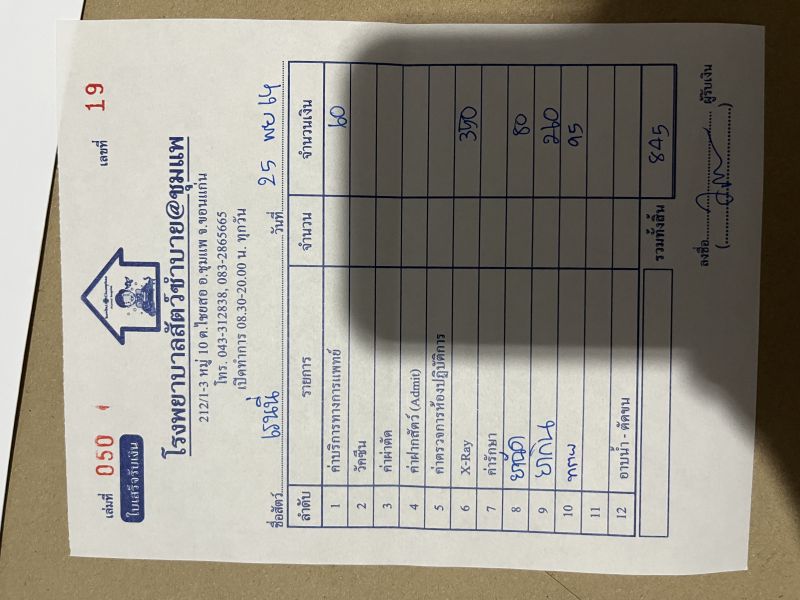 เล่มที่ 050 เลขที่ 19
ใบเสร็จรับเงิน
โรงพยาบาลสัตว์ซำบาย@ชุมแพ
212/1-3 หมู่ 10 ต.ไชยสอ อ.ชุมแพ จ.ขอนแก่น
โทร. 043-312838, 083-2865665
เปิดทำการ 08.30-20.00 น. ทุกวัน
ชื่อสัตว์ เรนนี่ วันที่ 25 พย 64
ลำดับ รายการ จำนวน จำนวนเงิน
1 ค่าบริการทางการแพทย์ 60
2 วัคซีน
3 ค่าผ่าตัด
4 ค่าฝากสัตว์ (Admit)
5 ค่าตรวจการห้องปฏิบัติการ
6 X-Ray 350
7 ค่ารักษา
8 ยาฉีด 80
9 ยากิน 260
10 95
11
12 อาบน้ำ - ตัดขน
รวมทั้งสิ้น 845
ลงชื่อ ผู้รับเงิน